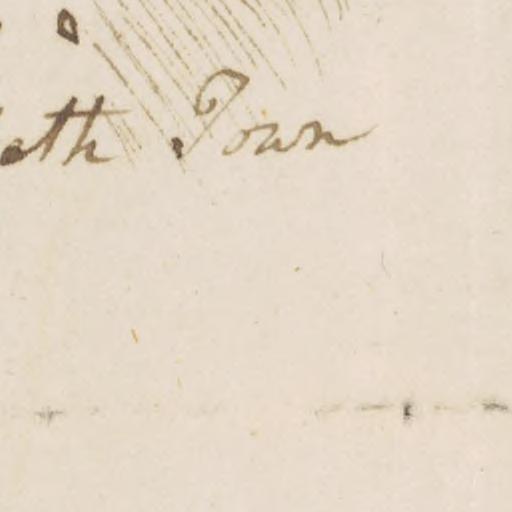 eth Town